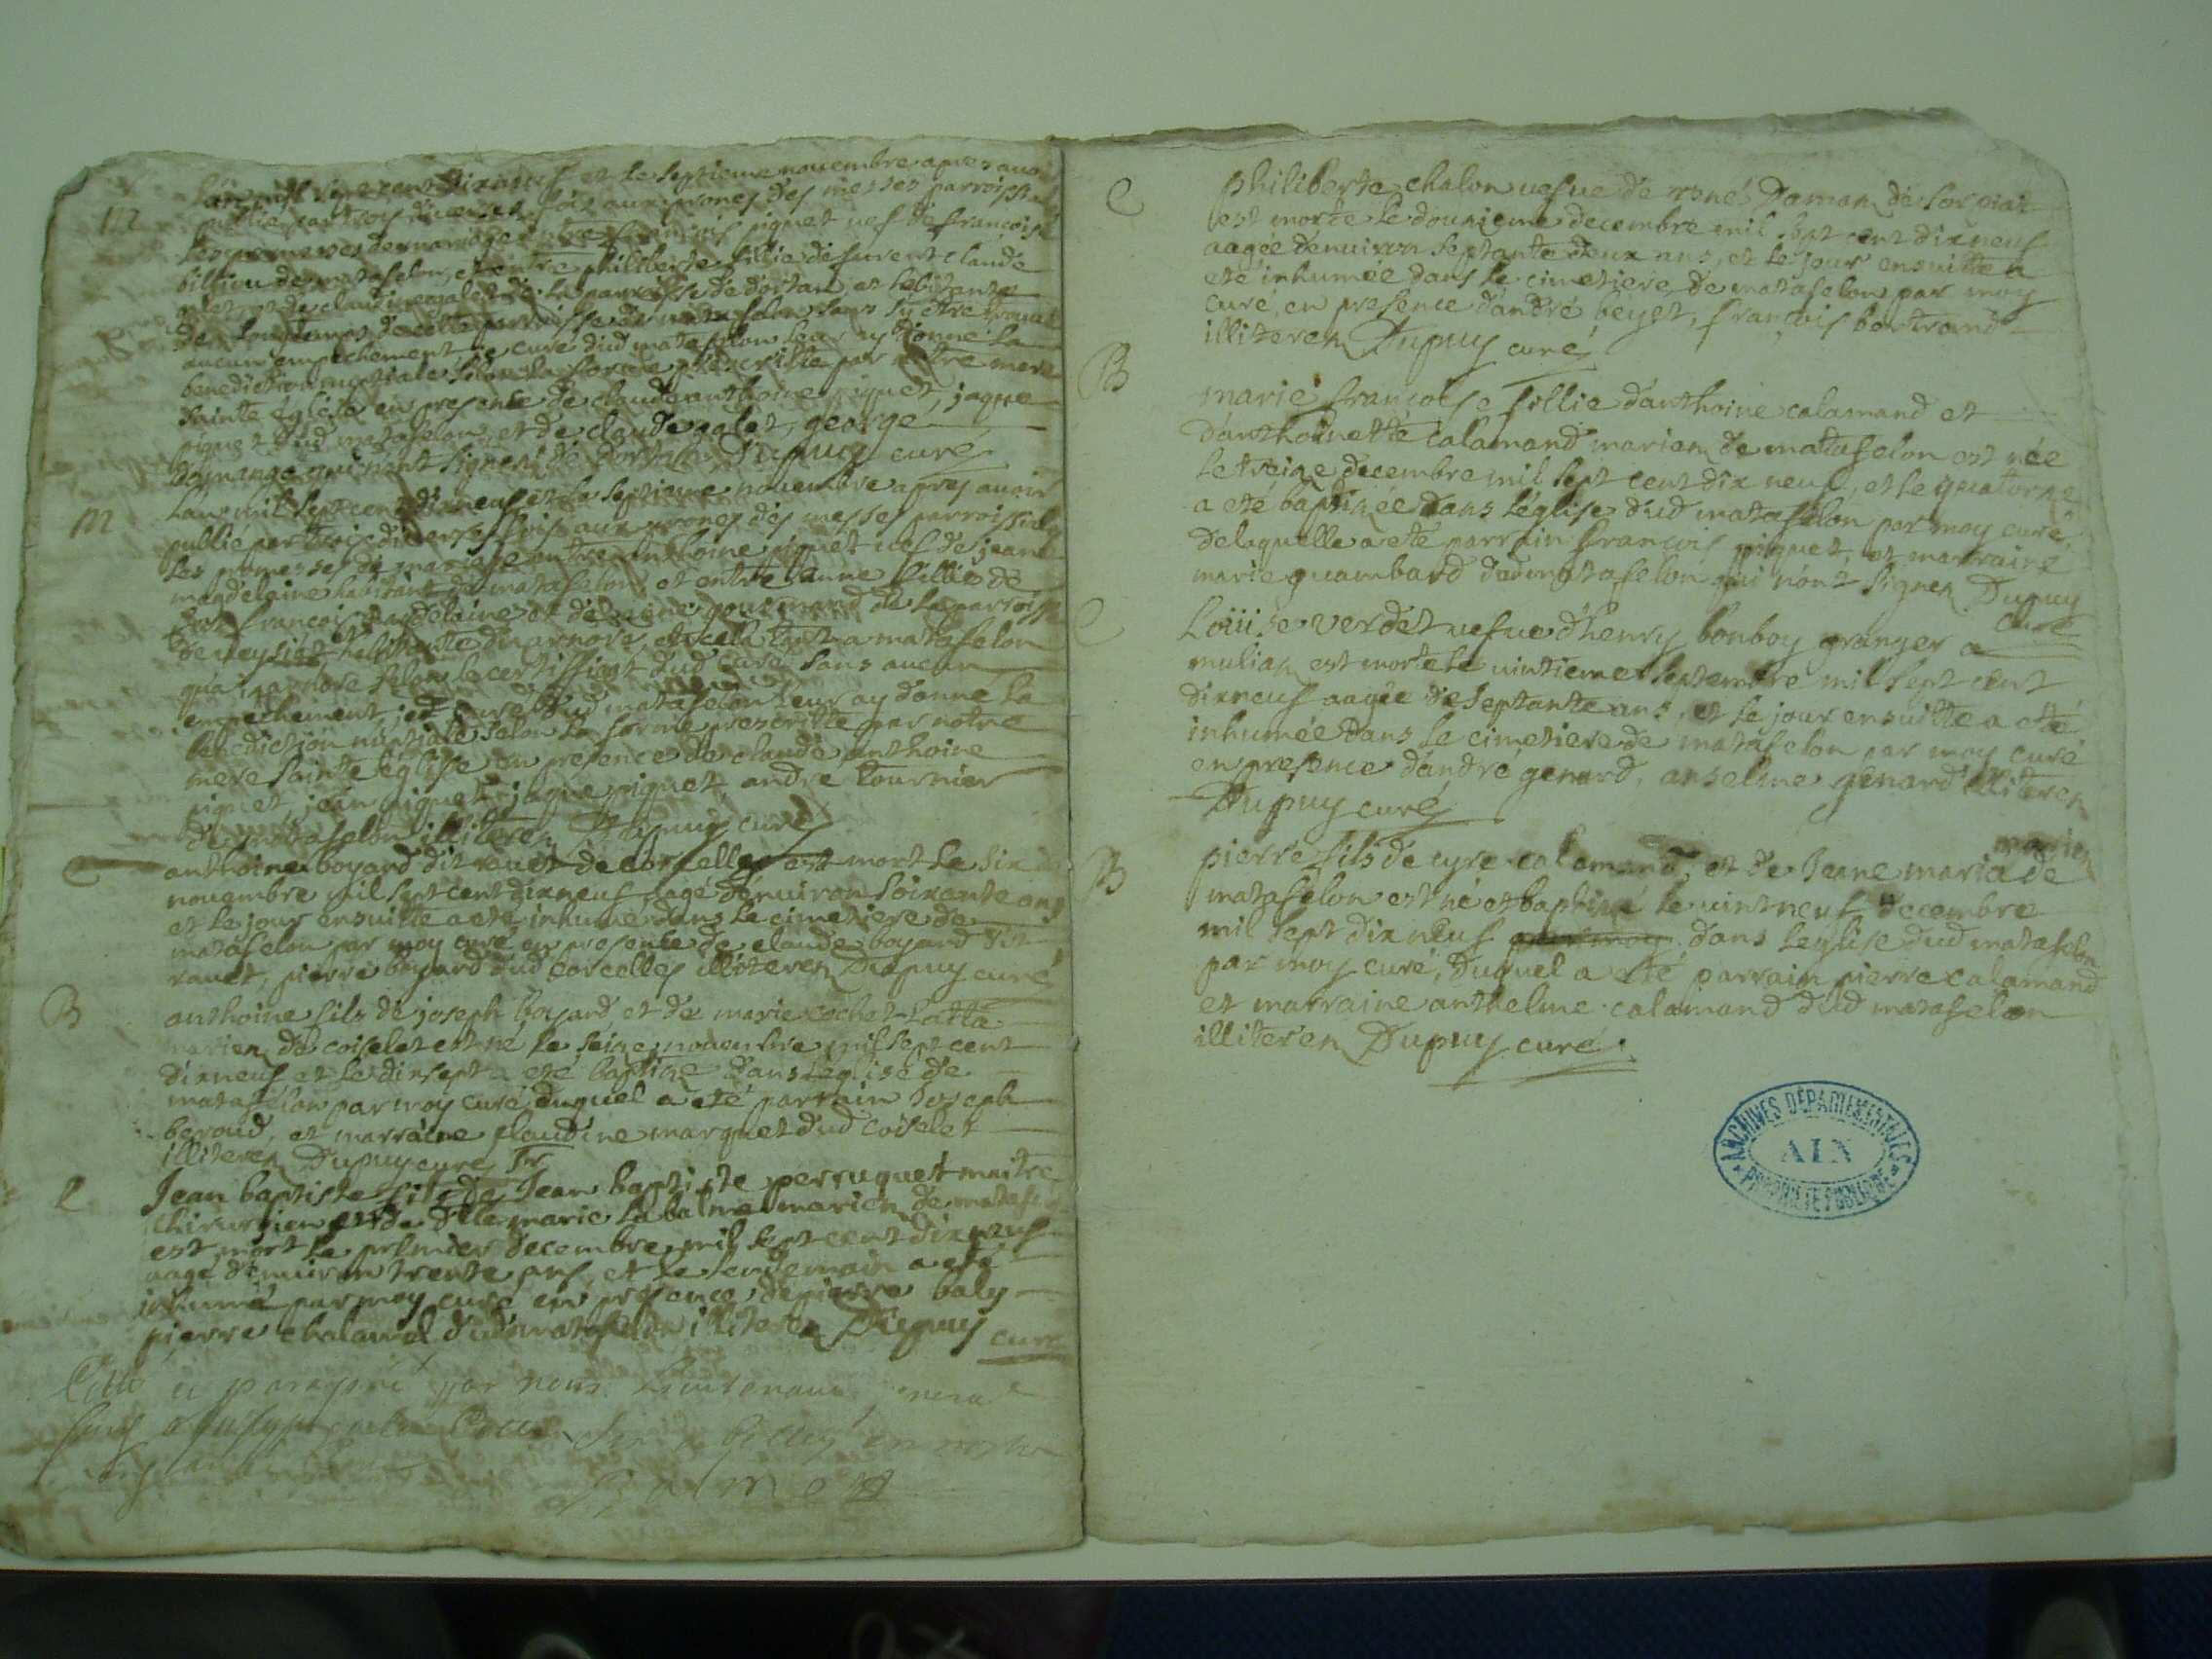 M
L'an mil sept cent dixneuf et le septieme novembre apres avoir
publié par trois diverses fois aux prones des messes parroissiales
les promesses de mariage entre piquet vef de françoise
billion de matafelon, et entre philiberte fillie de furent claude
galet, et de claudine galet de la parroisse de dortan et habitante
de cette parroisse de matafelon sans sy etre trouvé
aucun empechement je curé dud matafelon leur ay donné la
benediction nuptiale selon la forme prescritte par nôtre mere
sainte église en presence de claude anthoine piquet, jaque
piquet dud matafelon, et de claude galet, george
domange qui n'ont signez de dortan Dupuy curé
M
L'an mil sept cent dixneuf et le septieme novembre apres avoir
publié par trois diverses fois aux prones des messes parroissiales
les promesses de mariage entre anthoine piquet vef de jeane
mandelaine habitant de matafelon et entre anne fillie de
françois mandelaine et de gourmand de la parroisse
de veysiat habitante d'arnore, et cela tant a matafelon
qu'a arnore selon le certifficat dud curé sans aucun
empechement, je curé dud matafelon leur ay donné la
benediction nuptiale selon la forme prescritte par notre
mere sainte église en presence de claude anthoine
piquet, jean piquet, jaque piquet, andre tournier
de matafelon illiterez Dupuy curé
C
anthoine boyard dit ravet de corcelles est mort le six
novembre mil sept cent dixneuf aagé d'environ soixante ans
et le jour ensuitte a eté inhumé dans le cimetiere de
matafelon par moy curé en presente de claude boyard dit
ravet, pierre boyard dud corcelles illiterez Dupuy curé
B
anthoine fils de joseph boyard et de marie cochet latta
mariez de coiselet est né le seize novembre mil sept cent
dixneuf, et le dixsept a eté baptizé dans l'eglise de
matafelon par moy curé, duquel a eté parrain Joseph
beroud, et marraine claudine marquet dud coiselet
illiterez Dupuy curé
C
Jean baptiste fils de Jean baptiste perruquet maitre
chirurgien et de dlle marie labalme mariez de matafelon
est mort le premier decembre mil sept cent dixneuf
aagé d'environ trente ans, et le lendemain a eté
inhumé par moy curé en presence de pierre baly
pierre chaland dud matafelon illiterez Dupuy curé
par nous lieutenant general
C
philiberte chalon vefve de rené Daman de sorpiat
est morte le douzieme decembre mil sept cent dixneuf
aagée d'environ septante deux ans, et le jour ensuitte a
eté inhumée dans le cimetiere de matafelon par moy
curé, en presence d'andré beyet, françois bertrand
illiterez Dupuy curé
B
marie françoise fillie d'anthoine calamand et
d'anthoinette calamand mariez de matafelon est née
le treize decembre mil sept cent dix neuf, et le quatorze
a eté baptizée dans l'église dud matafelon par moy curé,
de laquelle a eté parrain françois piquet, et marraine
marie guambard dud matafelon qui n'ont signez Dupuy
curé
C
Loüise verdet vefve d'henry bonboy granger a
mulian est morte le vintieme septembre mil sept cent
dixneuf aagée de septante ans, et le jour ensuitte a eté
inhumée dans le cimetiere de matafelon par moy curé
en presence d'andré genard, anselme genard illiterez
Dupuy curé
B
mariez
pierre fils de cyre calamand, et de Jeane maria de
matafelon est né et baptizé le vintneuf decembre
mil sept dix neuf par moy dans leglise dud matafelon
par moy curé, duquel a eté parrain pierre calamand
et marraine anthelme calamand dud matafelon
illiterez Dupuy curé.
ARCHIVES DÉPARTEMENTALES
AIN
PROPRIÉTÉ PUBLIQUE